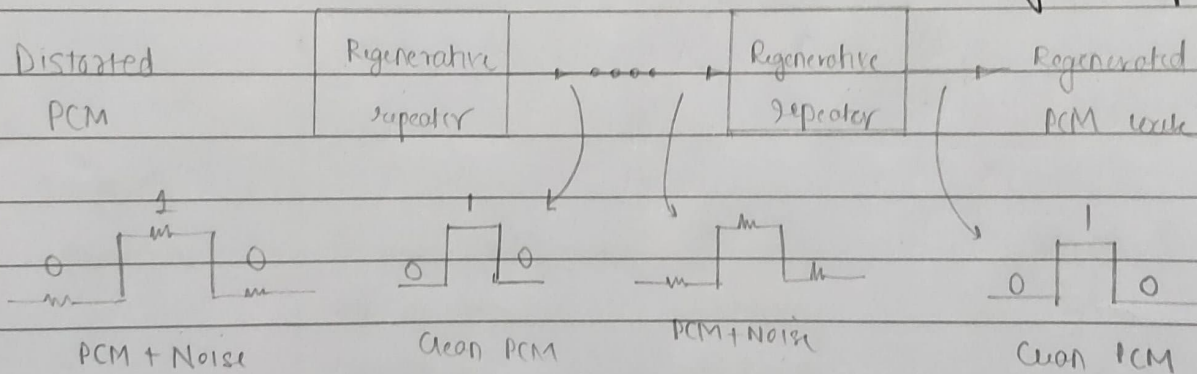 Distorted
PCM
Regenerative
repeater
Regenerative
repeater
Regenerated
PCM
1
0 0
PCM + Noise
1
0 0
Clean PCM
PCM + Noise
1
0 0
Clean PCM